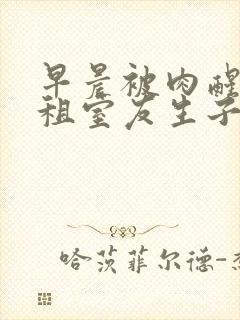 早晨被肉醒
租室友生子
哈茨菲尔德-杰